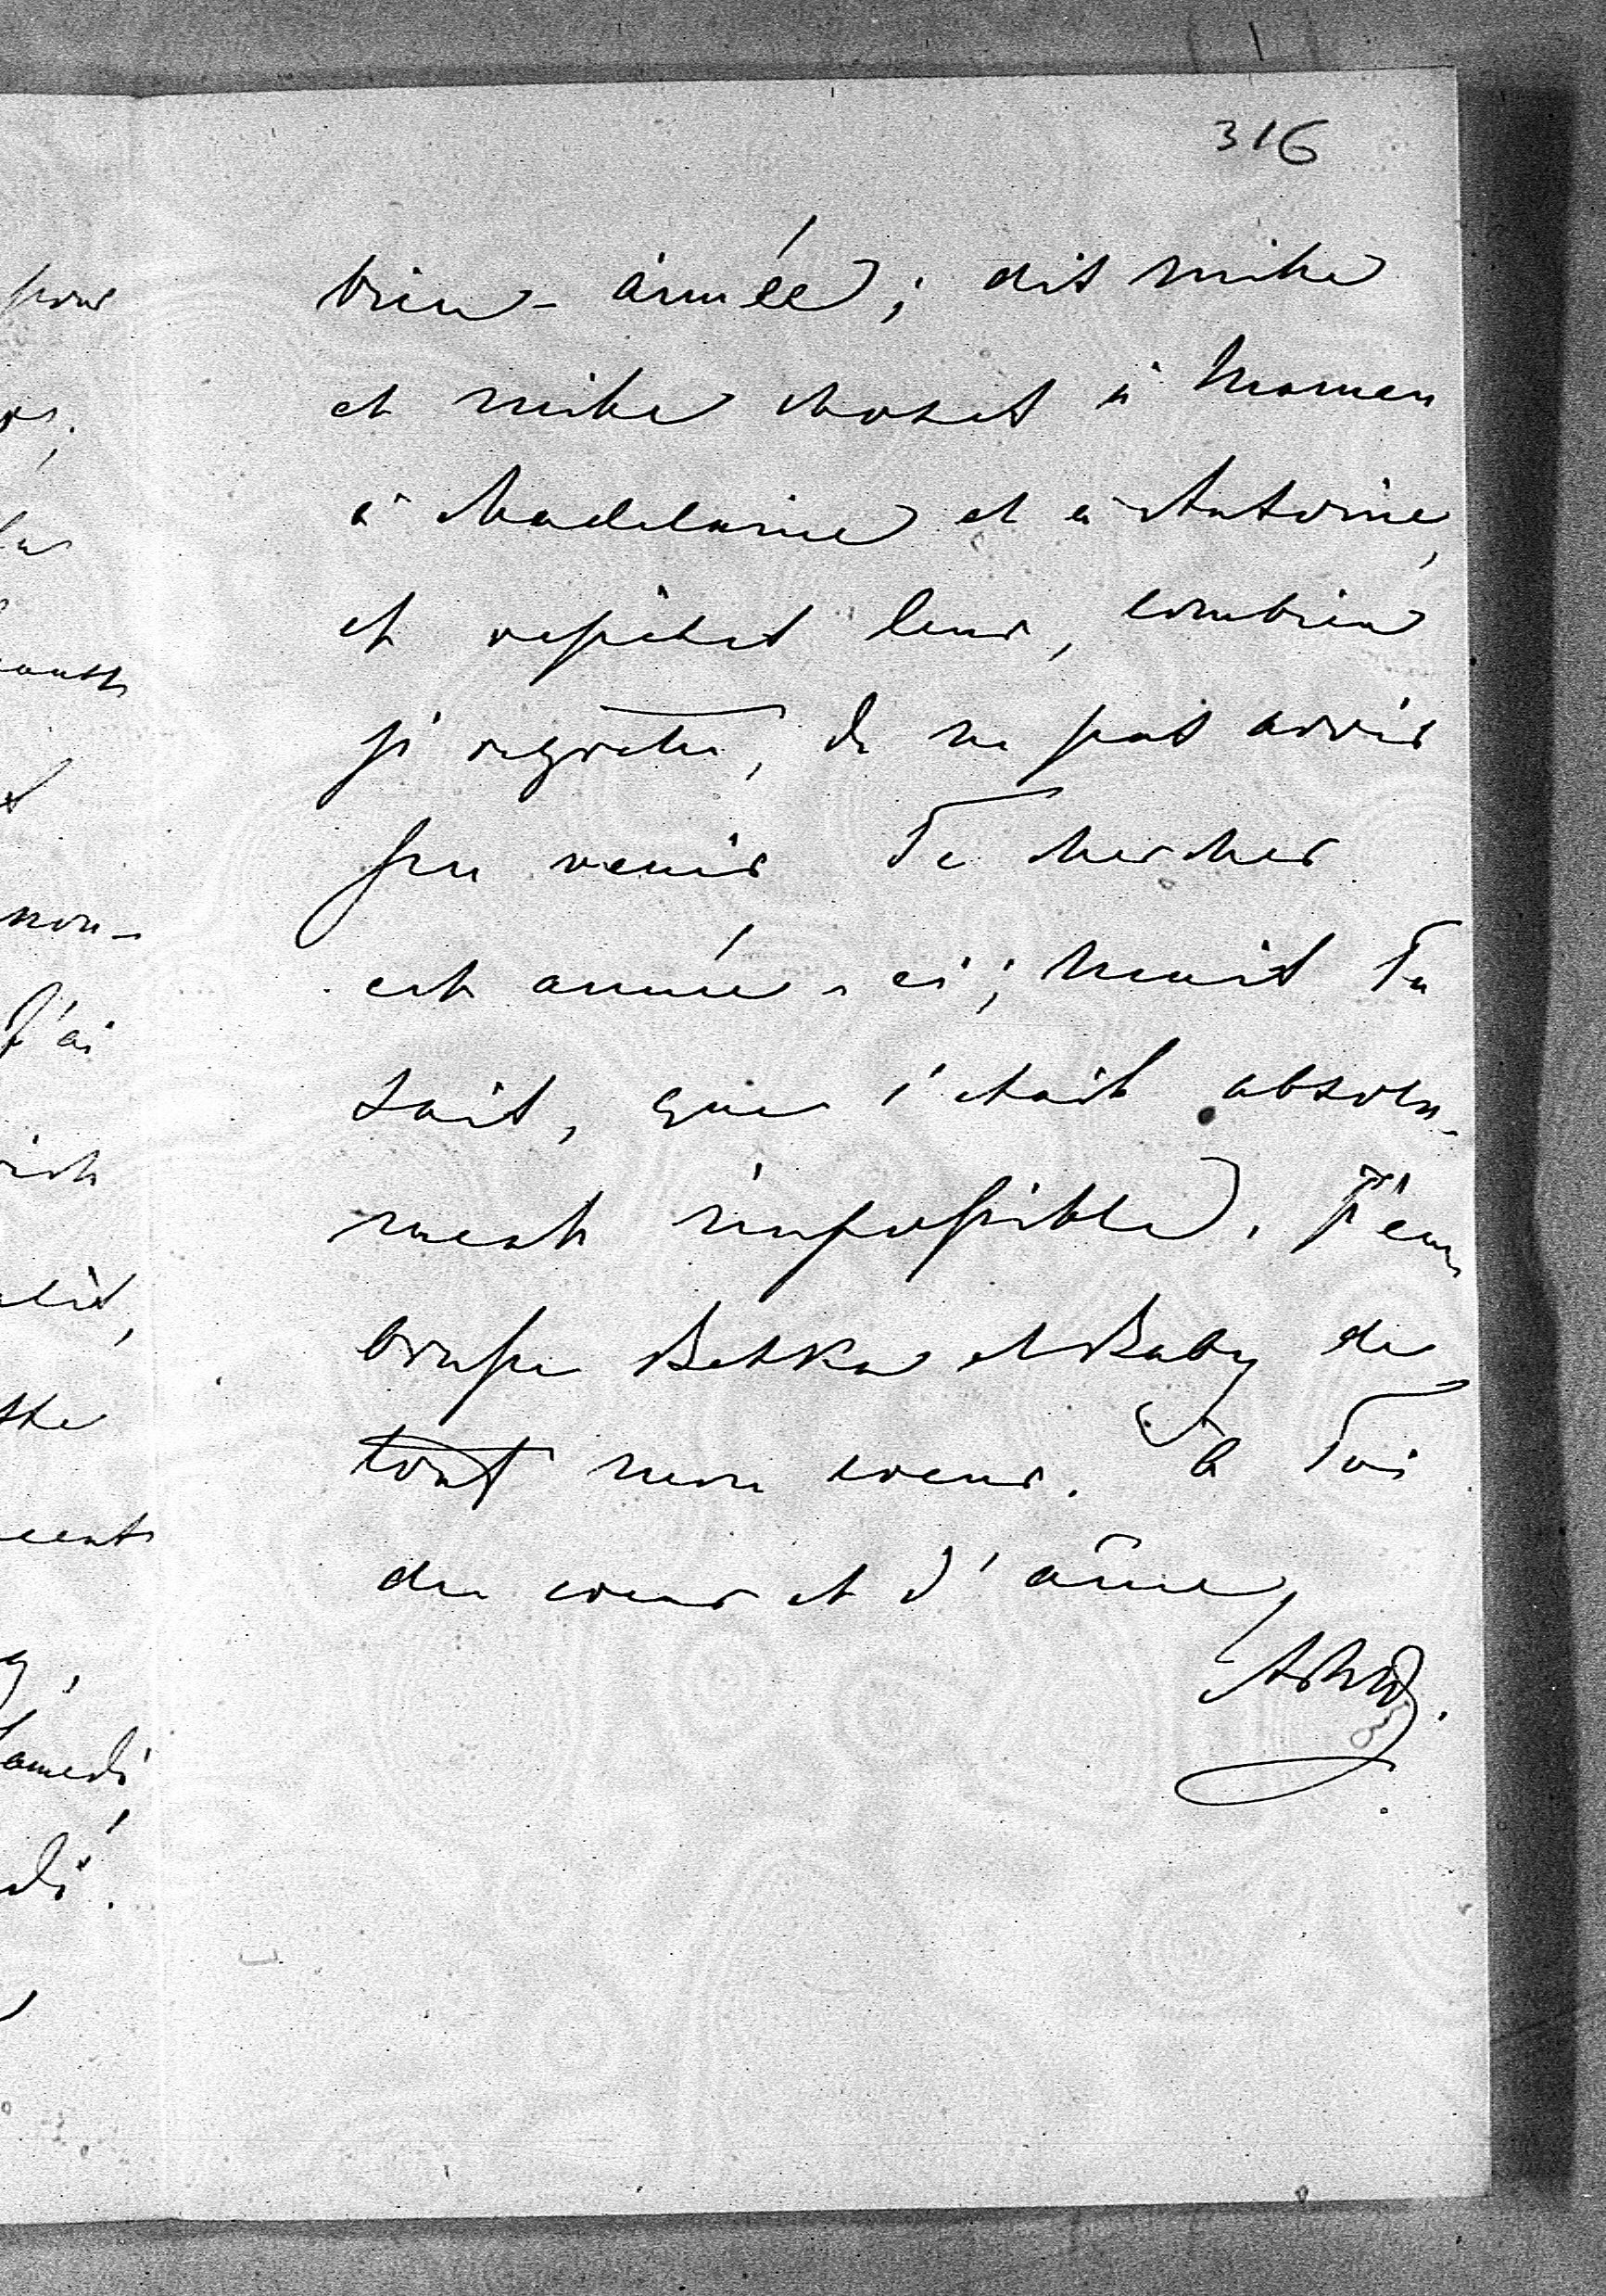 316
bien-aimée; dis mille
et mille choses à Maman
à Madelaine et à Antoine,
et repètes leur, combien
je regrette, de ne pas avoir
pu venir Te chercher
cet année-ci; Mais Tu
sais, que c'était absolu-
ment impossible. J'em
brasse Betka et Baby de
tout mon coeur. à Toi
de coeur et d'âme
pour
la
non-
J'ai
Samedi